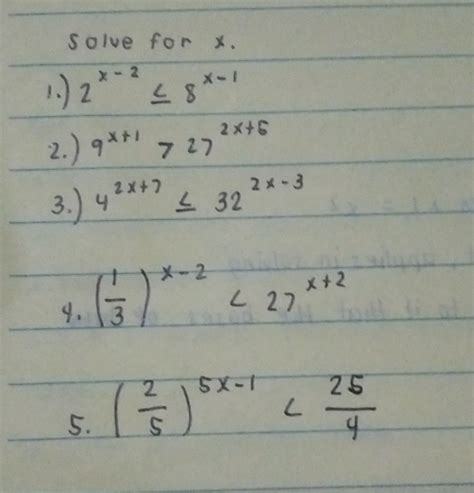 Solve for x.
1.) 2^(x-2) ≤ 8^(x-1)
2.) 9^(x+1) > 27^(2x+5)
3.) 4^(2x+7) ≤ 32^(2x-3)
4. (1/3)^(x-2) < 27^(x+2)
5. (2/5)^(5x-1) < 25/4